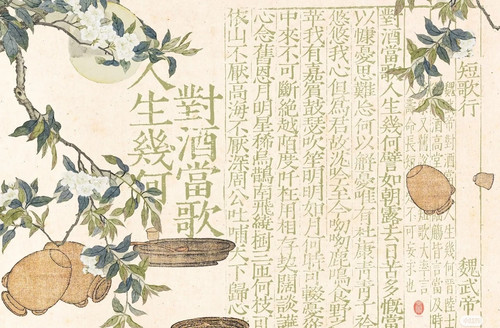 短歌行
魏武帝
對酒當歌人生幾何晉陸士
酒高堂
命長短
不可妄求也
對酒當歌人生幾何譬如朝露去日苦多慨當
以慷憂思難忘何以解憂唯有杜康青青子衿
悠悠我心但為君故沈吟至今呦呦鹿鳴食野之
苹我有嘉賓鼓瑟吹笙明明如月何時可輟憂從
中來不可斷絕越陌度阡枉用相存契闊談讌
心念舊恩月明星稀烏鵲南飛繞樹三匝何枝可
依山不厭高海不厭深周公吐哺天下歸心
對酒當歌
人生幾何